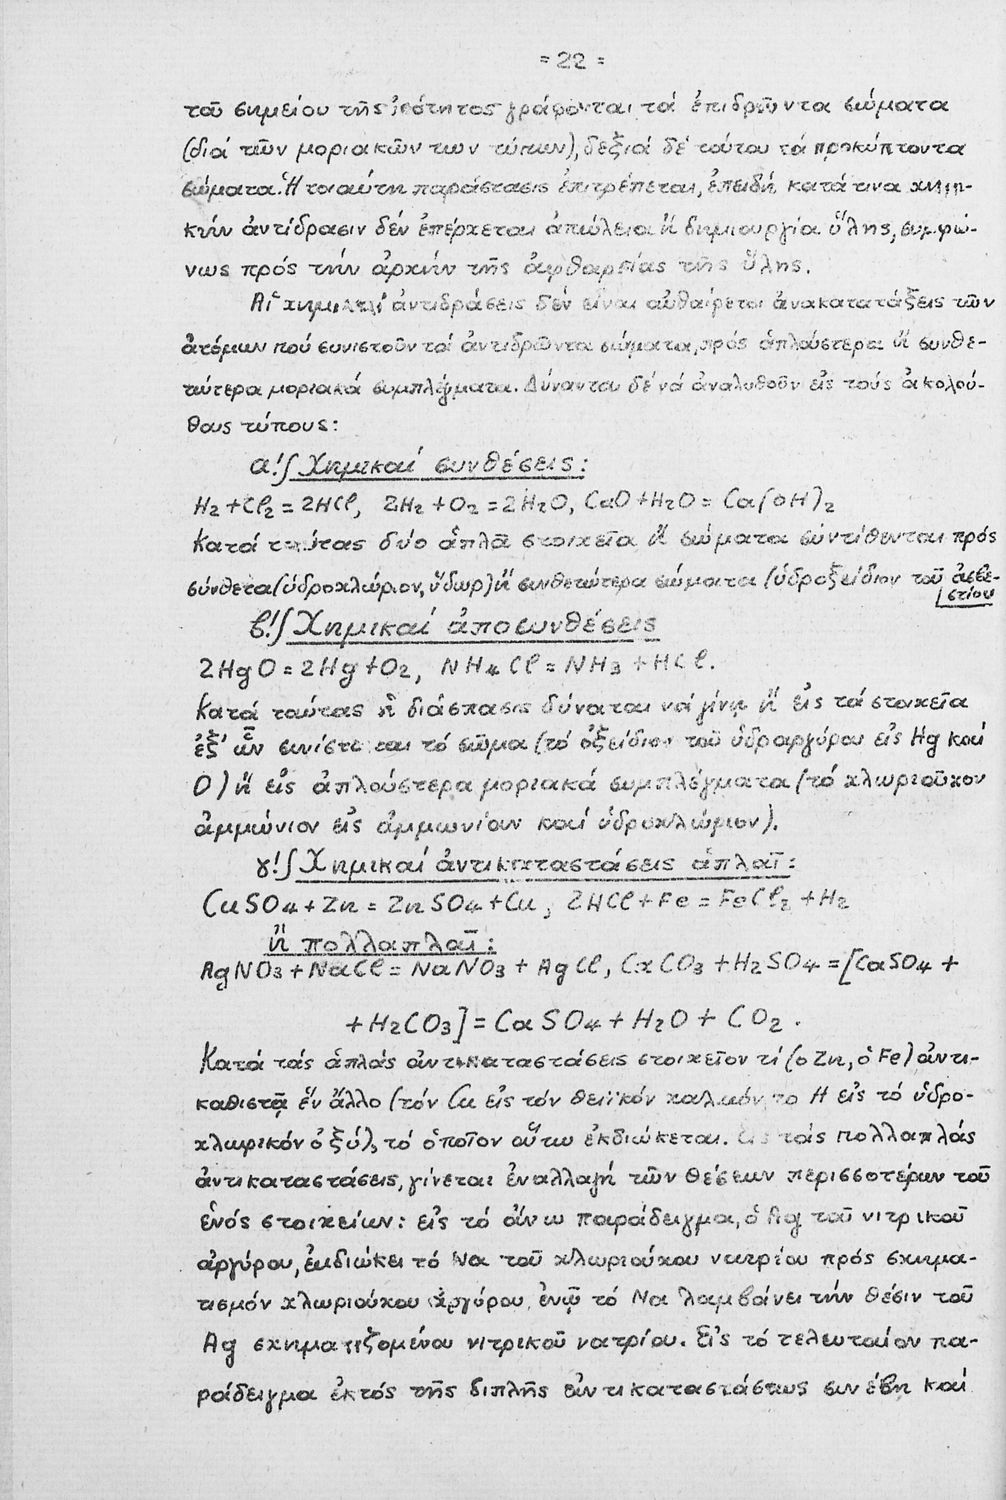 = 22 =
τοῦ σημείου τῆς ἰσότητος γράφονται τά ἐπιδρῶντα σώματα
(διά τῶν μοριακῶν των τύπων), δεξιά δέ τούτου τά προκύπτοντα
σώματα. Ἡ τοιαύτη παράστασις ἐπιτρέπεται, ἐπειδή κατά τινα χημι-
κήν ἀντίδρασιν δέν ἐπέρχεται ἀπώλεια ἤ δημιουργία ὕλης, συμφώ-
νως πρός τήν ἀρχήν τῆς ἀφθαρσίας τῆς ὕλης.
Αἱ χημικαί ἀντιδράσεις δέν εἶναι αὐθαίρετοι ἀνακατατάξεις τῶν
ἀτόμων πού συνιστοῦν τά ἀντιδρῶντα σώματα, πρός ἁπλούστερα ἤ συνθε-
τώτερα μοριακά συμπλέγματα. Δύνανται δέ νά ἀναλυθοῦν εἰς τούς ἀκολού-
θους τύπους:
α!∫ Χημικαί συνθέσεις:
H₂ + Cl₂ = 2HCl, 2H₂ + O₂ = 2H₂O, CaO + H₂O = Ca(OH)₂
Κατά ταύτας δύο ἁπλᾶ στοιχεῖα ἤ σώματα συντίθενται πρός
σύνθετα (ὑδροχλώριον, ὕδωρ) ἤ συνθετώτερα σώματα (ὑδροξείδιον τοῦ ἀσβε-
στίου
β!∫ Χημικαί ἀποσυνθέσεις
2HgO = 2Hg + O₂, NH₄Cl = NH₃ + HCl.
Κατά ταύτας ἡ διάσπασις δύναται νά γίνῃ ἤ εἰς τά στοιχεῖα
ἐξ' ὧν συνίσταται τό σῶμα (τό ὀξείδιον τοῦ ὑδραργύρου εἰς Hg καί
O) ἤ εἰς ἁπλούστερα μοριακά συμπλέγματα (τό χλωριοῦχον
ἀμμώνιον εἰς ἀμμωνίαν καί ὑδροχλώριον).
γ!∫ Χημικαί ἀντικαταστάσεις ἁπλαῖ:
CuSO₄ + Zn = ZnSO₄ + Cu, 2HCl + Fe = FeCl₂ + H₂
ἤ πολλαπλαῖ:
AgNO₃ + NaCl = NaNO₃ + AgCl, CaCO₃ + H₂SO₄ = [CaSO₄ +
+ H₂CO₃] = CaSO₄ + H₂O + CO₂.
Κατά τάς ἁπλάς ἀντικαταστάσεις στοιχεῖον τί (ὁ Zn, ὁ Fe) ἀντι-
καθιστᾷ ἕν ἄλλο (τόν Cu εἰς τόν θειϊκόν χαλκόν, το H εἰς τό ὑδρο-
χλωρικόν ὀξύ), τό ὁποῖον οὕτω ἐκδιώκεται. Εἰς τάς πολλαπλάς
ἀντικαταστάσεις, γίνεται ἐναλλαγή τῶν θέσεων περισσοτέρων τοῦ
ἑνός στοιχείων: εἰς τό ἄνω παράδειγμα, ὁ Ag τοῦ νιτρικοῦ
ἀργύρου, ἐκδιώκει τό Na τοῦ χλωριούχου νατρίου πρός σχημα-
τισμόν χλωριούχου ἀργύρου, ἐνῷ τό Na λαμβάνει τήν θέσιν τοῦ
Ag σχηματιζομένου νιτρικοῦ νατρίου. Εἰς τό τελευταίον πα-
ράδειγμα ἐκτός τῆς διπλῆς ἀντικαταστάσεως συνέβη καί